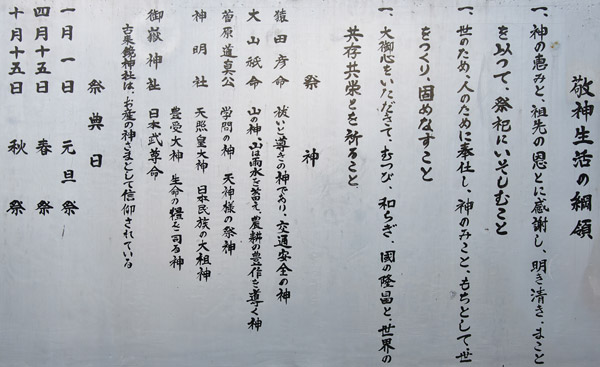 敬神生活の綱領
一、神の恵みと祖先の恩とに感謝し、明き清き、まこと
を以つて、祭祀にいそしむこと
一、世のため、人のために奉仕し、神のみこと、もちとして、世
をつくり、固めなすこと
一、大御心をいたゞきて、むつび、和らぎ、國の隆昌と、世界の
共存共栄とを祈ること
祭神
猿田彦命 祓いと導きの神であり、交通安全の神
大山祇命 山の神、山は雨水を蓄え、農耕の豊作を導く神
菅原道真公 学問の神 天神様の祭神
神明社 天照皇大神 日本民族の大祖神
豊受大神 生命の糧を司る神
御嶽神社 日本武尊命
古来鏡神社は、お産の神さまとして信仰されている
祭典日
一月一日 元旦祭
四月十五日 春祭
十月十五日 秋祭